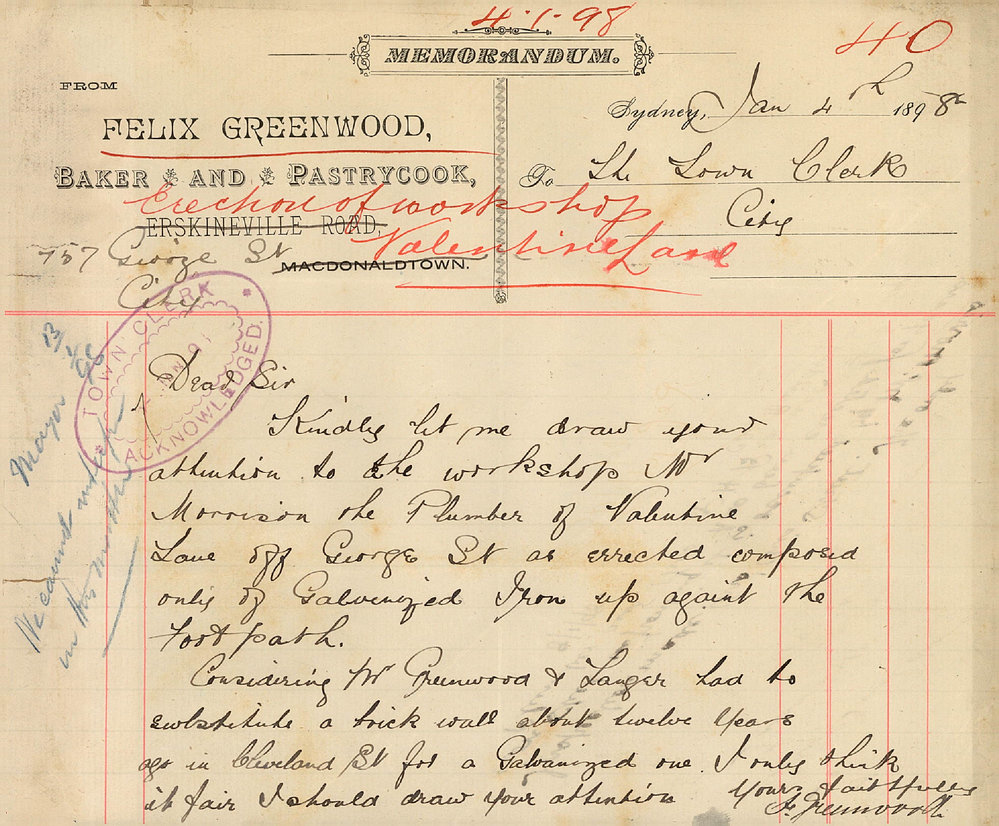 4-1-98
40
MEMORANDUM.
FROM
FELIX GREENWOOD,
BAKER AND PASTRYCOOK,
ERSKINEVILLE ROAD,
MACDONALDTOWN.
757 George St
City
Sydney, Jan 4th 1898
To The Town Clerk
City
Erection of workshop
Valentine Lane
TOWN CLERK
ACKNOWLEDGED.
Mayor
13/1/98
We cannot
in this matter
Dear Sir
Kindly let me draw your
attention to the workshop Mr
Morrison the Plumber of Valentine
Lane off George St as errected composed
only of Galvenized Iron up againt the
footpath.
Considering Mr Greenwood & Langer had to
swbstitute a brick wall about twelve years
ago in Cleveland St for a Galvanized one I only think
it fair I should draw your attention Yours faithfully
F. Greenwood